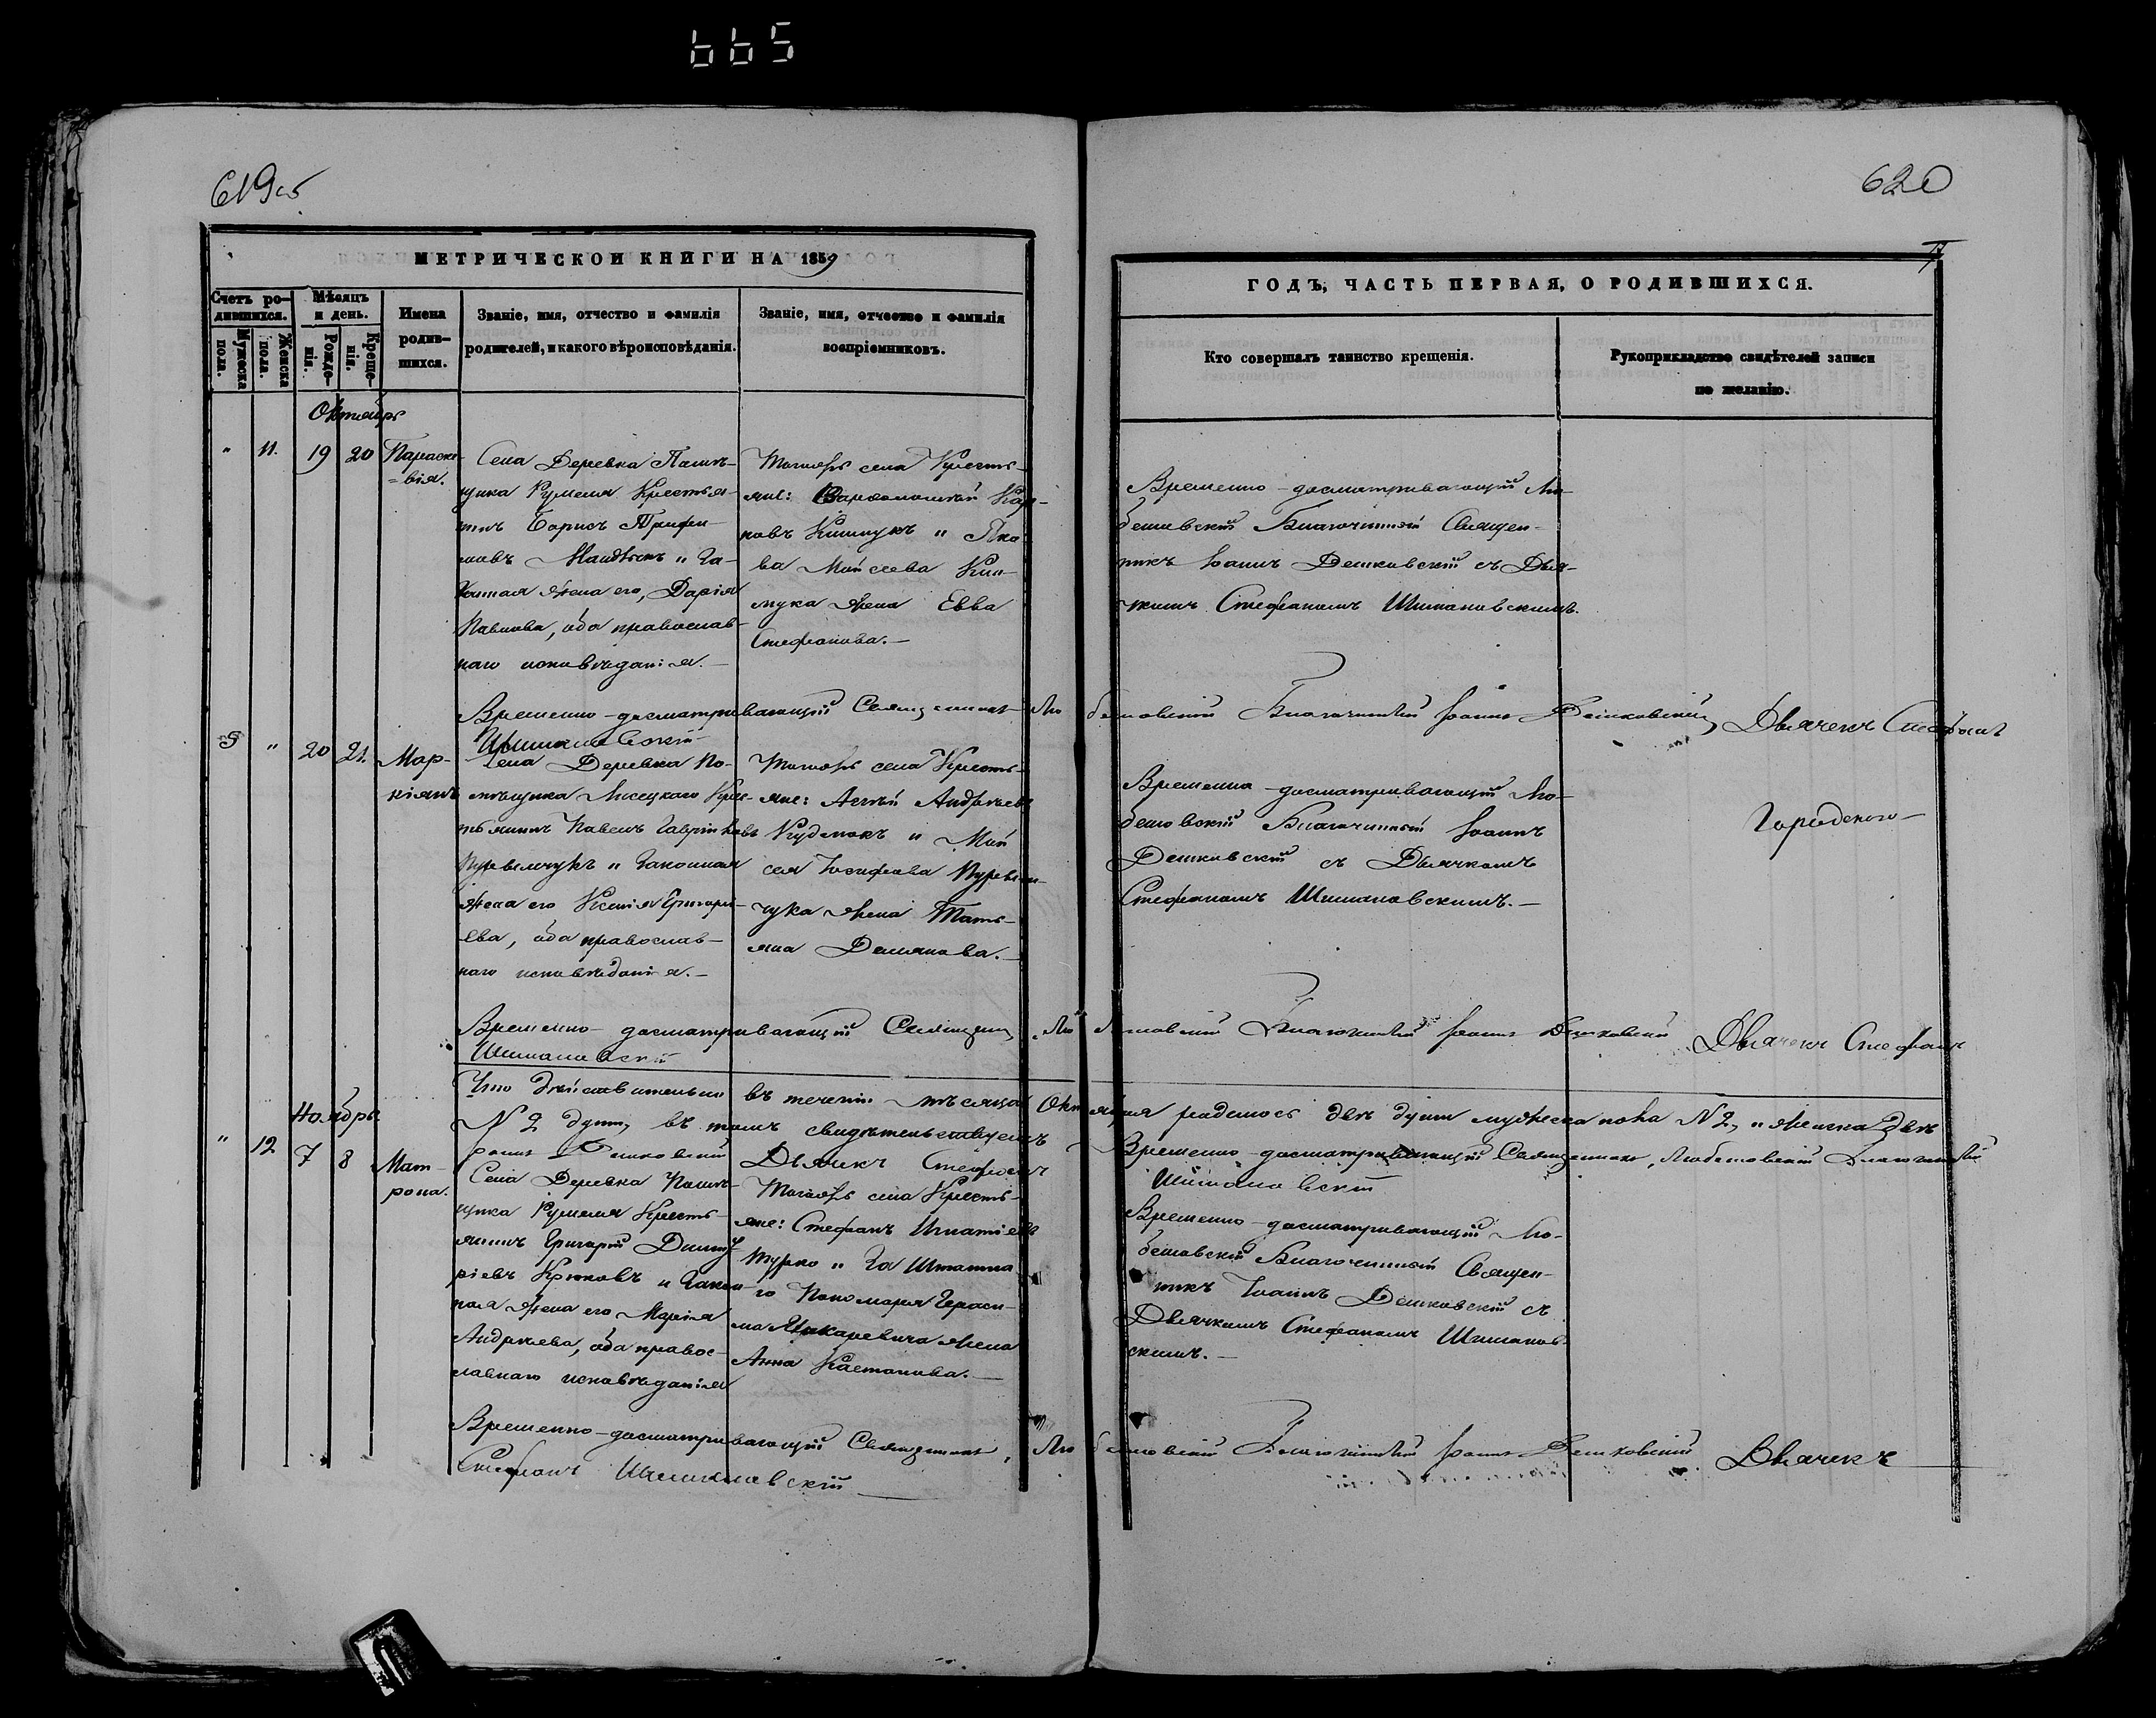 665
619об
620
МЕТРИЧЕСКОЙ КНИГИ НА 1859
ГОДЪ, ЧАСТЬ ПЕРВАЯ, О РОДИВШИХСЯ.
Счетъ ро-
дившихся.
Мужеска
пола.
Женска
пола.
Мѣсяцъ
и день.
Рожде-
нія.
Креще-
нія.
Имена
родив-
шихся.
Званіе, имя, отчество и фамилія
родителей, и какого вѣроисповѣданія.
Званіе, имя, отчество и фамилія
воспріемниковъ.
Кто совершалъ таинство крещенія.
Рукоприкладство свидѣтелей записи
по желанію.
Октябрь
" 11. 19 20
Параске-
=вія.
Села Деревка
Крестья-
нинъ Борисъ
За-
конная жена его, Дарія
Павлова, оба православ-
наго исповѣданія.—
Тогожъ села Кресть-
яне:
Мойсеева
жена Евва
Стефанова.—
Временно-досматривающій Лю-
бешовскій Благочинный Священ-
никъ Іоаннъ Дешковскій съ Дья-
чкомъ Стефаномъ Шимановскимъ.
Временно-досматривающій Священникъ Любешовскій Благочинный Іоаннъ Дешковскій, Дьячекъ Стефанъ
Шимановскій
" 20 21.
Мар-
кіянъ
Села Деревка По-
мѣщика Крес-
тьянинъ Павелъ
и законная
жена его Ксенія Григорь-
ева, оба православ-
наго исповѣданія.—
Тогожъ села Кресть-
яне: Андреевъ
и Мой
сея Іосифова
чука жена Тать-
яна Демянова.—
Временно-досматривающій Лю-
бешовскій Благочинный Іоаннъ
Дешковскій съ Дьячкомъ
Стефаномъ Шимановскимъ.—
Временно-досматривающій Священникъ, Любешовскій Благочинный Іоаннъ Дешковскій Дьячекъ Стефанъ
Шимановскій
Что дѣйствительно въ теченіи мѣсяца Октября родилось двѣ души мужеска пола N 2, и женска двѣ
N 2 души, въ томъ свидѣтельствуемъ Временно-досматривающій Священникъ, Любешовскій Благочинный
Іоаннъ Дешковскій Дьячекъ Стефанъ Шимановскій
Ноябрь
" 12 7 8
Мат-
рона.
Села Деревка Помѣ-
щика Кресть-
янинъ Григорій Димит-
ріевъ Крюковъ и закон-
ная жена его Марія
Андреева, оба правос-
лавнаго исповѣданія
Тогожъ села Кресть-
яне: Стефанъ Игнатіевъ
Турко и
Пономаря Гераси-
ма Макаревича жена
Анна
Временно-досматривающій Лю-
бешовскій Благочинный Священ-
никъ Іоаннъ Дешковскій съ
Дьячкомъ Стефаномъ Шиманов-
скимъ.—
Временно-досматривающій Священникъ, Любешовскій Благочинный Іоаннъ Дешковскій Дьячекъ
Стефанъ Шимановскій